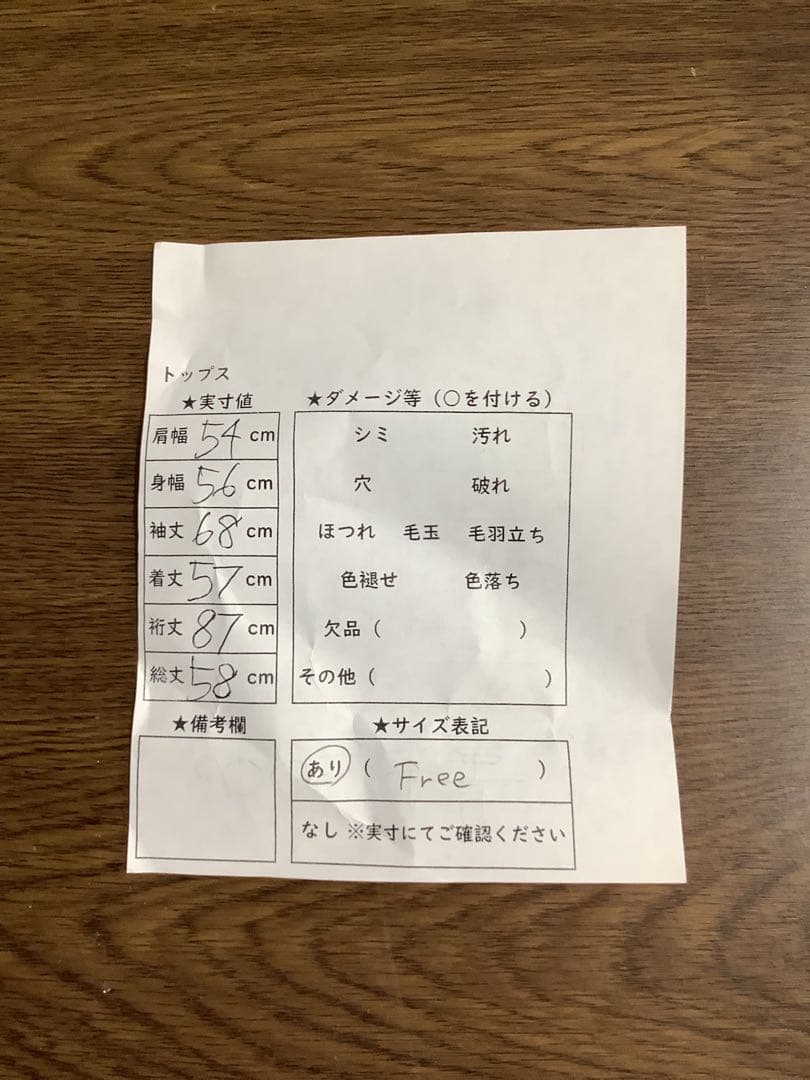 トップス
★実寸値
肩幅 54 cm
身幅 56 cm
袖丈 68 cm
着丈 57 cm
裄丈 87 cm
総丈 58 cm
★ダメージ等（○を付ける）
シミ 汚れ
穴 破れ
ほつれ 毛玉 毛羽立ち
色褪せ 色落ち
欠品（ ）
その他（ ）
★備考欄
★サイズ表記
あり（ Free ）
なし ※実寸にてご確認ください